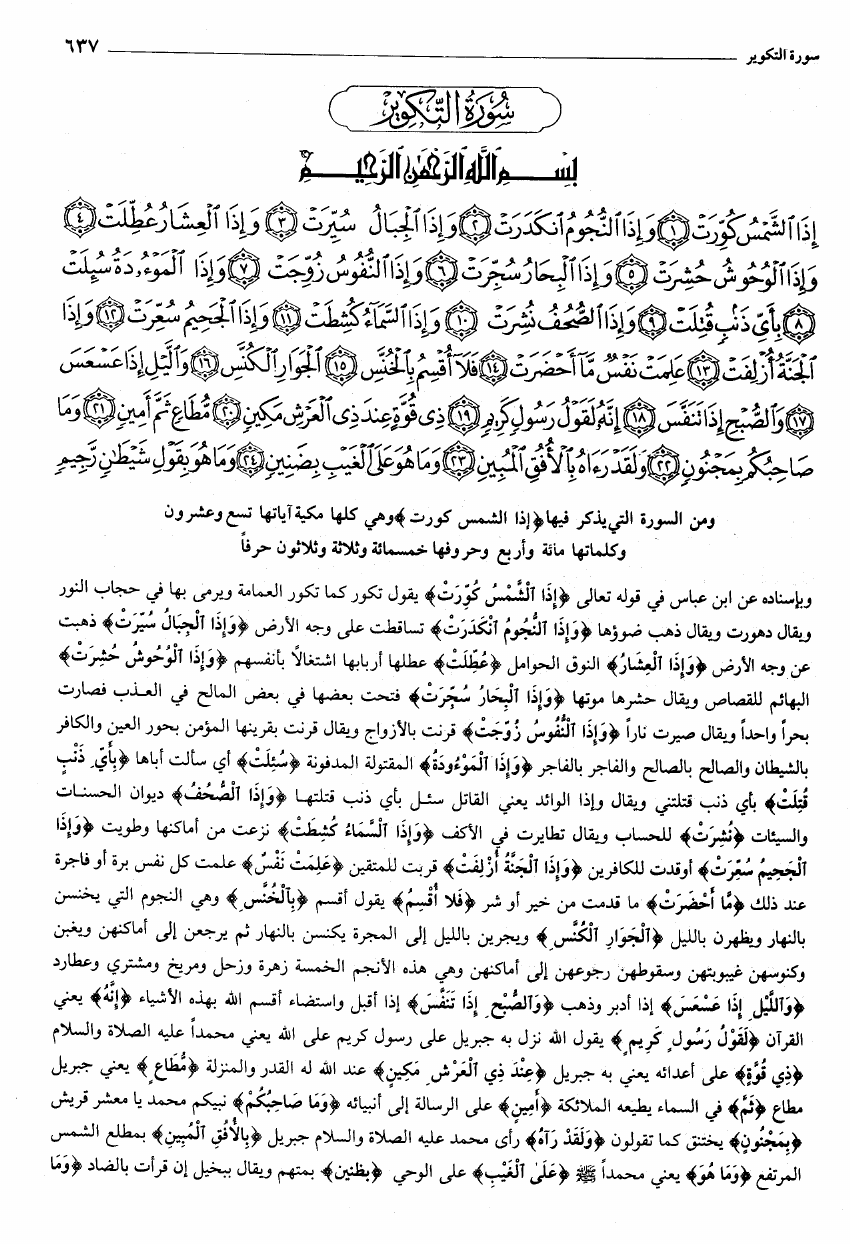 سورة التكوير ٦٣٧
سُورَةُ التَّكْوِيرِ
بِسْمِ ٱللَّهِ ٱلرَّحْمَٰنِ ٱلرَّحِيمِ
إِذَا ٱلشَّمْسُ كُوِّرَتْ ١ وَإِذَا ٱلنُّجُومُ ٱنكَدَرَتْ ٢ وَإِذَا ٱلْجِبَالُ سُيِّرَتْ ٣ وَإِذَا ٱلْعِشَارُ عُطِّلَتْ ٤
وَإِذَا ٱلْوُحُوشُ حُشِرَتْ ٥ وَإِذَا ٱلْبِحَارُ سُجِّرَتْ ٦ وَإِذَا ٱلنُّفُوسُ زُوِّجَتْ ٧ وَإِذَا ٱلْمَوْءُۥدَةُ سُئِلَتْ
٨ بِأَىِّ ذَنۢبٍ قُتِلَتْ ٩ وَإِذَا ٱلصُّحُفُ نُشِرَتْ ١٠ وَإِذَا ٱلسَّمَآءُ كُشِطَتْ ١١ وَإِذَا ٱلْجَحِيمُ سُعِّرَتْ ١٢ وَإِذَا
ٱلْجَنَّةُ أُزْلِفَتْ ١٣ عَلِمَتْ نَفْسٌ مَّآ أَحْضَرَتْ ١٤ فَلَآ أُقْسِمُ بِٱلْخُنَّسِ ١٥ ٱلْجَوَارِ ٱلْكُنَّسِ ١٦ وَٱلَّيْلِ إِذَا عَسْعَسَ
١٧ وَٱلصُّبْحِ إِذَا تَنَفَّسَ ١٨ إِنَّهُۥ لَقَوْلُ رَسُولٍ كَرِيمٍ ١٩ ذِى قُوَّةٍ عِندَ ذِى ٱلْعَرْشِ مَكِينٍ ٢٠ مُّطَاعٍ ثَمَّ أَمِينٍ ٢١ وَمَا
صَاحِبُكُم بِمَجْنُونٍ ٢٢ وَلَقَدْ رَءَاهُ بِٱلْأُفُقِ ٱلْمُبِينِ ٢٣ وَمَا هُوَ عَلَى ٱلْغَيْبِ بِضَنِينٍ ٢٤ وَمَا هُوَ بِقَوْلِ شَيْطَٰنٍ رَّجِيمٍ
ومن السورة التي يذكر فيها ﴿إذا الشمس كورت﴾ وهي كلها مكية آياتها تسع وعشرون
وكلماتها مائة وأربع وحروفها خمسمائة وثلاثة وثلاثون حرفاً
وبإسناده عن ابن عباس في قوله تعالى ﴿إِذَا ٱلشَّمْسُ كُوِّرَتْ﴾ يقول تكور كما تكور العمامة ويرمى بها في حجاب النور
ويقال دهورت ويقال ذهب ضوؤها ﴿وَإِذَا ٱلنُّجُومُ ٱنْكَدَرَتْ﴾ تساقطت على وجه الأرض ﴿وَإِذَا ٱلْجِبَالُ سُيِّرَتْ﴾ ذهبت
عن وجه الأرض ﴿وَإِذَا ٱلْعِشَارُ﴾ النوق الحوامل ﴿عُطِّلَتْ﴾ عطلها أربابها اشتغالاً بأنفسهم ﴿وَإِذَا ٱلْوُحُوشُ حُشِرَتْ﴾
البهائم للقصاص ويقال حشرها موتها ﴿وَإِذَا ٱلْبِحَارُ سُجِّرَتْ﴾ فتحت بعضها في بعض المالح في العذب فصارت
بحراً واحداً ويقال صيرت ناراً ﴿وَإِذَا ٱلنُّفُوسُ زُوِّجَتْ﴾ قرنت بالأزواج ويقال قرنت بقرينها المؤمن بحور العين والكافر
بالشيطان والصالح بالصالح والفاجر بالفاجر ﴿وَإِذَا ٱلْمَوْءُودَةُ﴾ المقتولة المدفونة ﴿سُئِلَتْ﴾ أي سألت أباها ﴿بِأَيِّ ذَنْبٍ
قُتِلَتْ﴾ بأي ذنب قتلتني ويقال وإذا الوائد يعني القاتل سئل بأي ذنب قتلتها ﴿وَإِذَا ٱلصُّحُفُ﴾ ديوان الحسنات
والسيئات ﴿نُشِرَتْ﴾ للحساب ويقال تطايرت في الأكف ﴿وَإِذَا ٱلسَّمَاءُ كُشِطَتْ﴾ نزعت من أماكنها وطويت ﴿وَإِذَا
ٱلْجَحِيمُ سُعِّرَتْ﴾ أوقدت للكافرين ﴿وَإِذَا ٱلْجَنَّةُ أُزْلِفَتْ﴾ قربت للمتقين ﴿عَلِمَتْ نَفْسٌ﴾ علمت كل نفس برة أو فاجرة
عند ذلك ﴿مَّا أَحْضَرَتْ﴾ ما قدمت من خير أو شر ﴿فَلَا أُقْسِمُ﴾ يقول أقسم ﴿بِٱلْخُنَّسِ﴾ وهي النجوم التي يخنسن
بالنهار ويظهرن بالليل ﴿ٱلْجَوَارِ ٱلْكُنَّسِ﴾ ويجرين بالليل إلى المجرة يكنسن بالنهار ثم يرجعن إلى أماكنهن ويغبن
وكنوسهن غيبوبتهن وسقوطهن رجوعهن إلى أماكنهن وهي هذه الأنجم الخمسة زهرة وزحل ومريخ ومشتري وعطارد
﴿وَٱللَّيْلِ إِذَا عَسْعَسَ﴾ إذا أدبر وذهب ﴿وَٱلصُّبْحِ إِذَا تَنَفَّسَ﴾ إذا أقبل واستضاء أقسم الله بهذه الأشياء ﴿إِنَّهُ﴾ يعني
القرآن ﴿لَقَوْلُ رَسُولٍ كَرِيمٍ﴾ يقول الله نزل به جبريل على رسول كريم على الله يعني محمداً عليه الصلاة والسلام
﴿ذِي قُوَّةٍ﴾ على أعدائه يعني به جبريل ﴿عِنْدَ ذِي ٱلْعَرْشِ مَكِينٍ﴾ عند الله له القدر والمنزلة ﴿مُّطَاعٍ﴾ يعني جبريل
مطاع ﴿ثَمَّ﴾ في السماء يطيعه الملائكة ﴿أَمِينٍ﴾ على الرسالة إلى أنبيائه ﴿وَمَا صَاحِبُكُمْ﴾ نبيكم محمد يا معشر قريش
﴿بِمَجْنُونٍ﴾ يختنق كما تقولون ﴿وَلَقَدْ رَآهُ﴾ رأى محمد عليه الصلاة والسلام جبريل ﴿بِالأُفُقِ ٱلْمُبِينِ﴾ بمطلع الشمس
المرتفع ﴿وَمَا هُوَ﴾ يعني محمداً ﷺ ﴿عَلَى ٱلْغَيْبِ﴾ على الوحي ﴿بِظنين﴾ بمتهم ويقال ببخيل إن قرأت بالضاد ﴿وَمَا